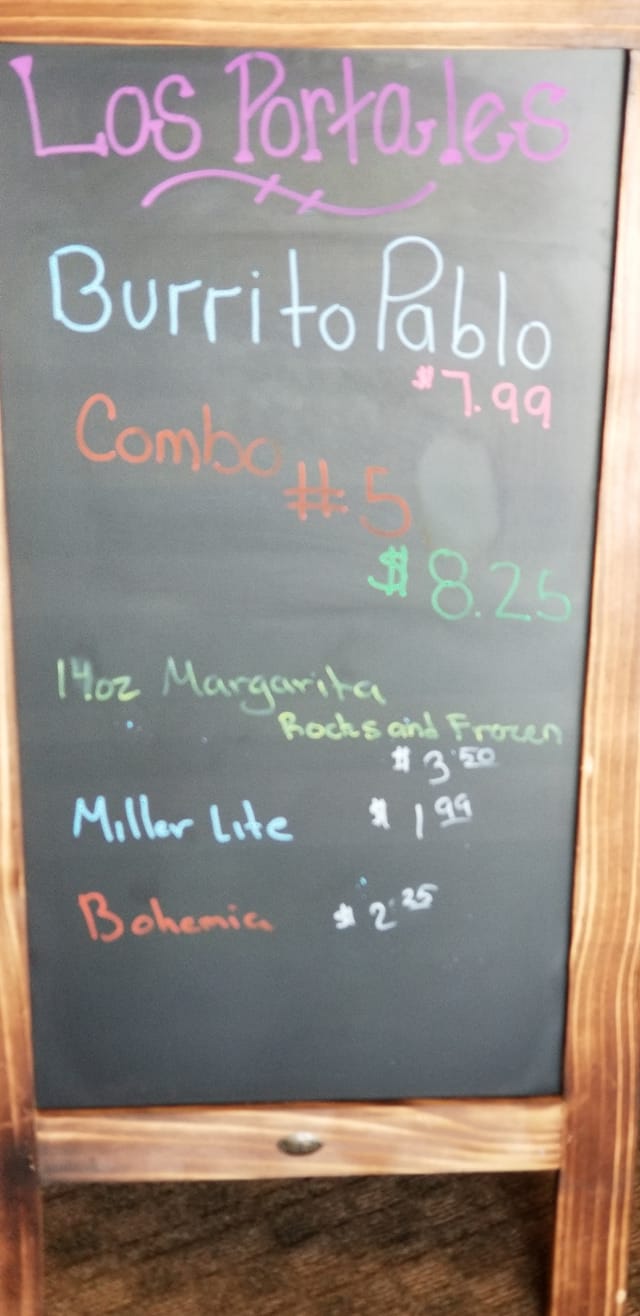 Los Portales
Burrito Pablo
$7.99
Combo
#5
$8.25
14oz Margarita
Rocks and Frozen
$3.50
Miller Lite $1.99
Bohemia $2.25